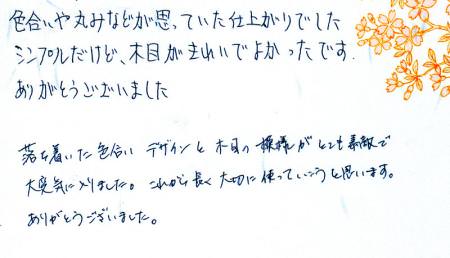 色合いや丸みなどが思っていた仕上がりでした
シンプルだけど、木目がきれいでよかったです.
ありがとうございました
落ち着いた色合い デザインと木目の模様がとても素敵で
大変気に入りました。これから長く大切に使っていこうと思います。
ありがとうございました。